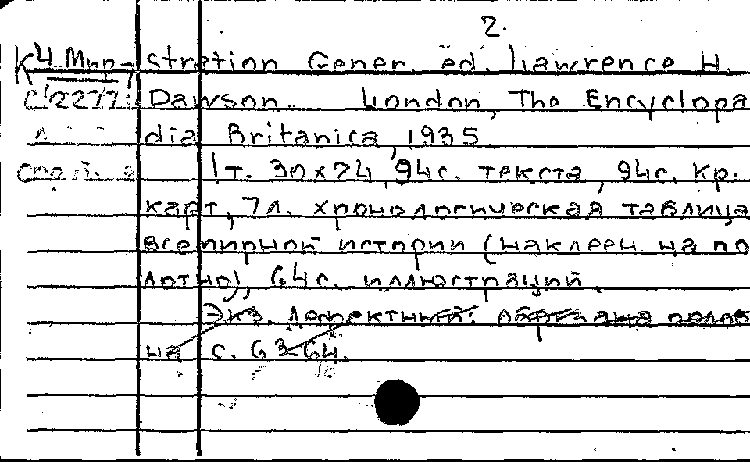 2.
К 4 Мир-
stration Gener. ed. Lawrence H.
С/2277
Dawson. London, The Encyclopa
dia Britanica, 1935
1т. 30x24, 94с. текста, 94с. кр.
карт, 7л. хронологическая таблица
всемирной истории (наклеен. на по
лотно), 64с. иллюстраций.
Экз. дефектный: обрезана полов
на с. 63-64.